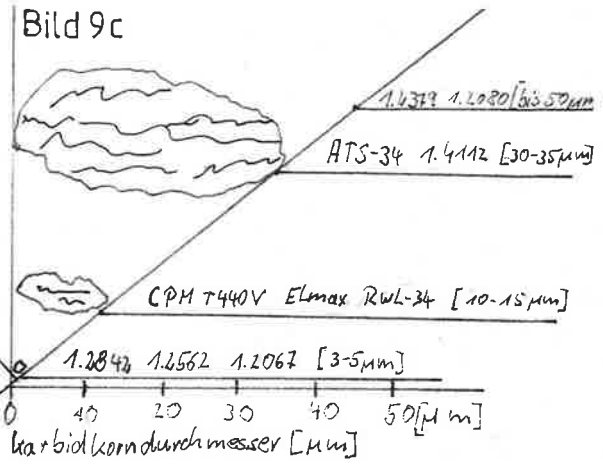 Bild 9c
1.4379 1.2080[bis 50µm
ATS-34 1.4112 [30-35µm]
CPM T440V Elmax RWL-34 [10-15µm]
1.2842 1.2562 1.2067 [3-5µm]
0 10 20 30 40 50[µm]
karbidkorndurchmesser [µm]